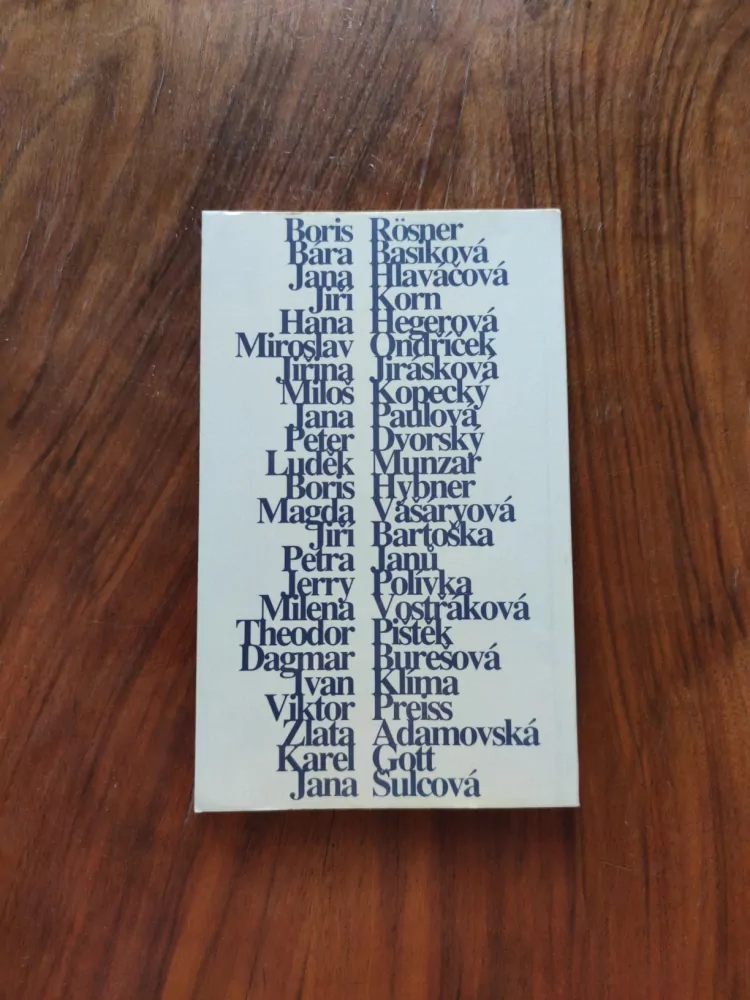 Boris Rösner
Bára Basiková
Jana Hlaváčová
Jiří Korn
Hana Hegerová
Miroslav Ondříček
Jiřina Jirásková
Miloš Kopecký
Jana Paulová
Peter Dvorský
Luděk Munzar
Boris Hybner
Magda Vášáryová
Jiří Bartoška
Petra Janů
Jerry Polívka
Milena Vostřáková
Theodor Pištěk
Dagmar Burešová
Ivan Klíma
Viktor Preiss
Zlata Adamovská
Karel Gott
Jana Šulcová